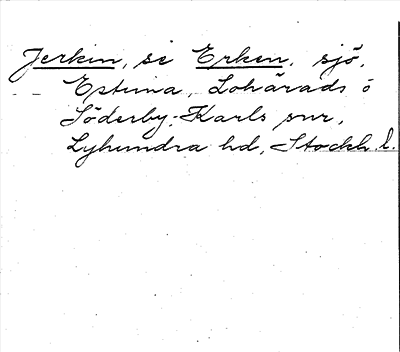 Jerken, se Erken, sjö,
Estuna, Lohärads o
Söderby-Karls snr,
Lyhundra hd, Stockh. l.